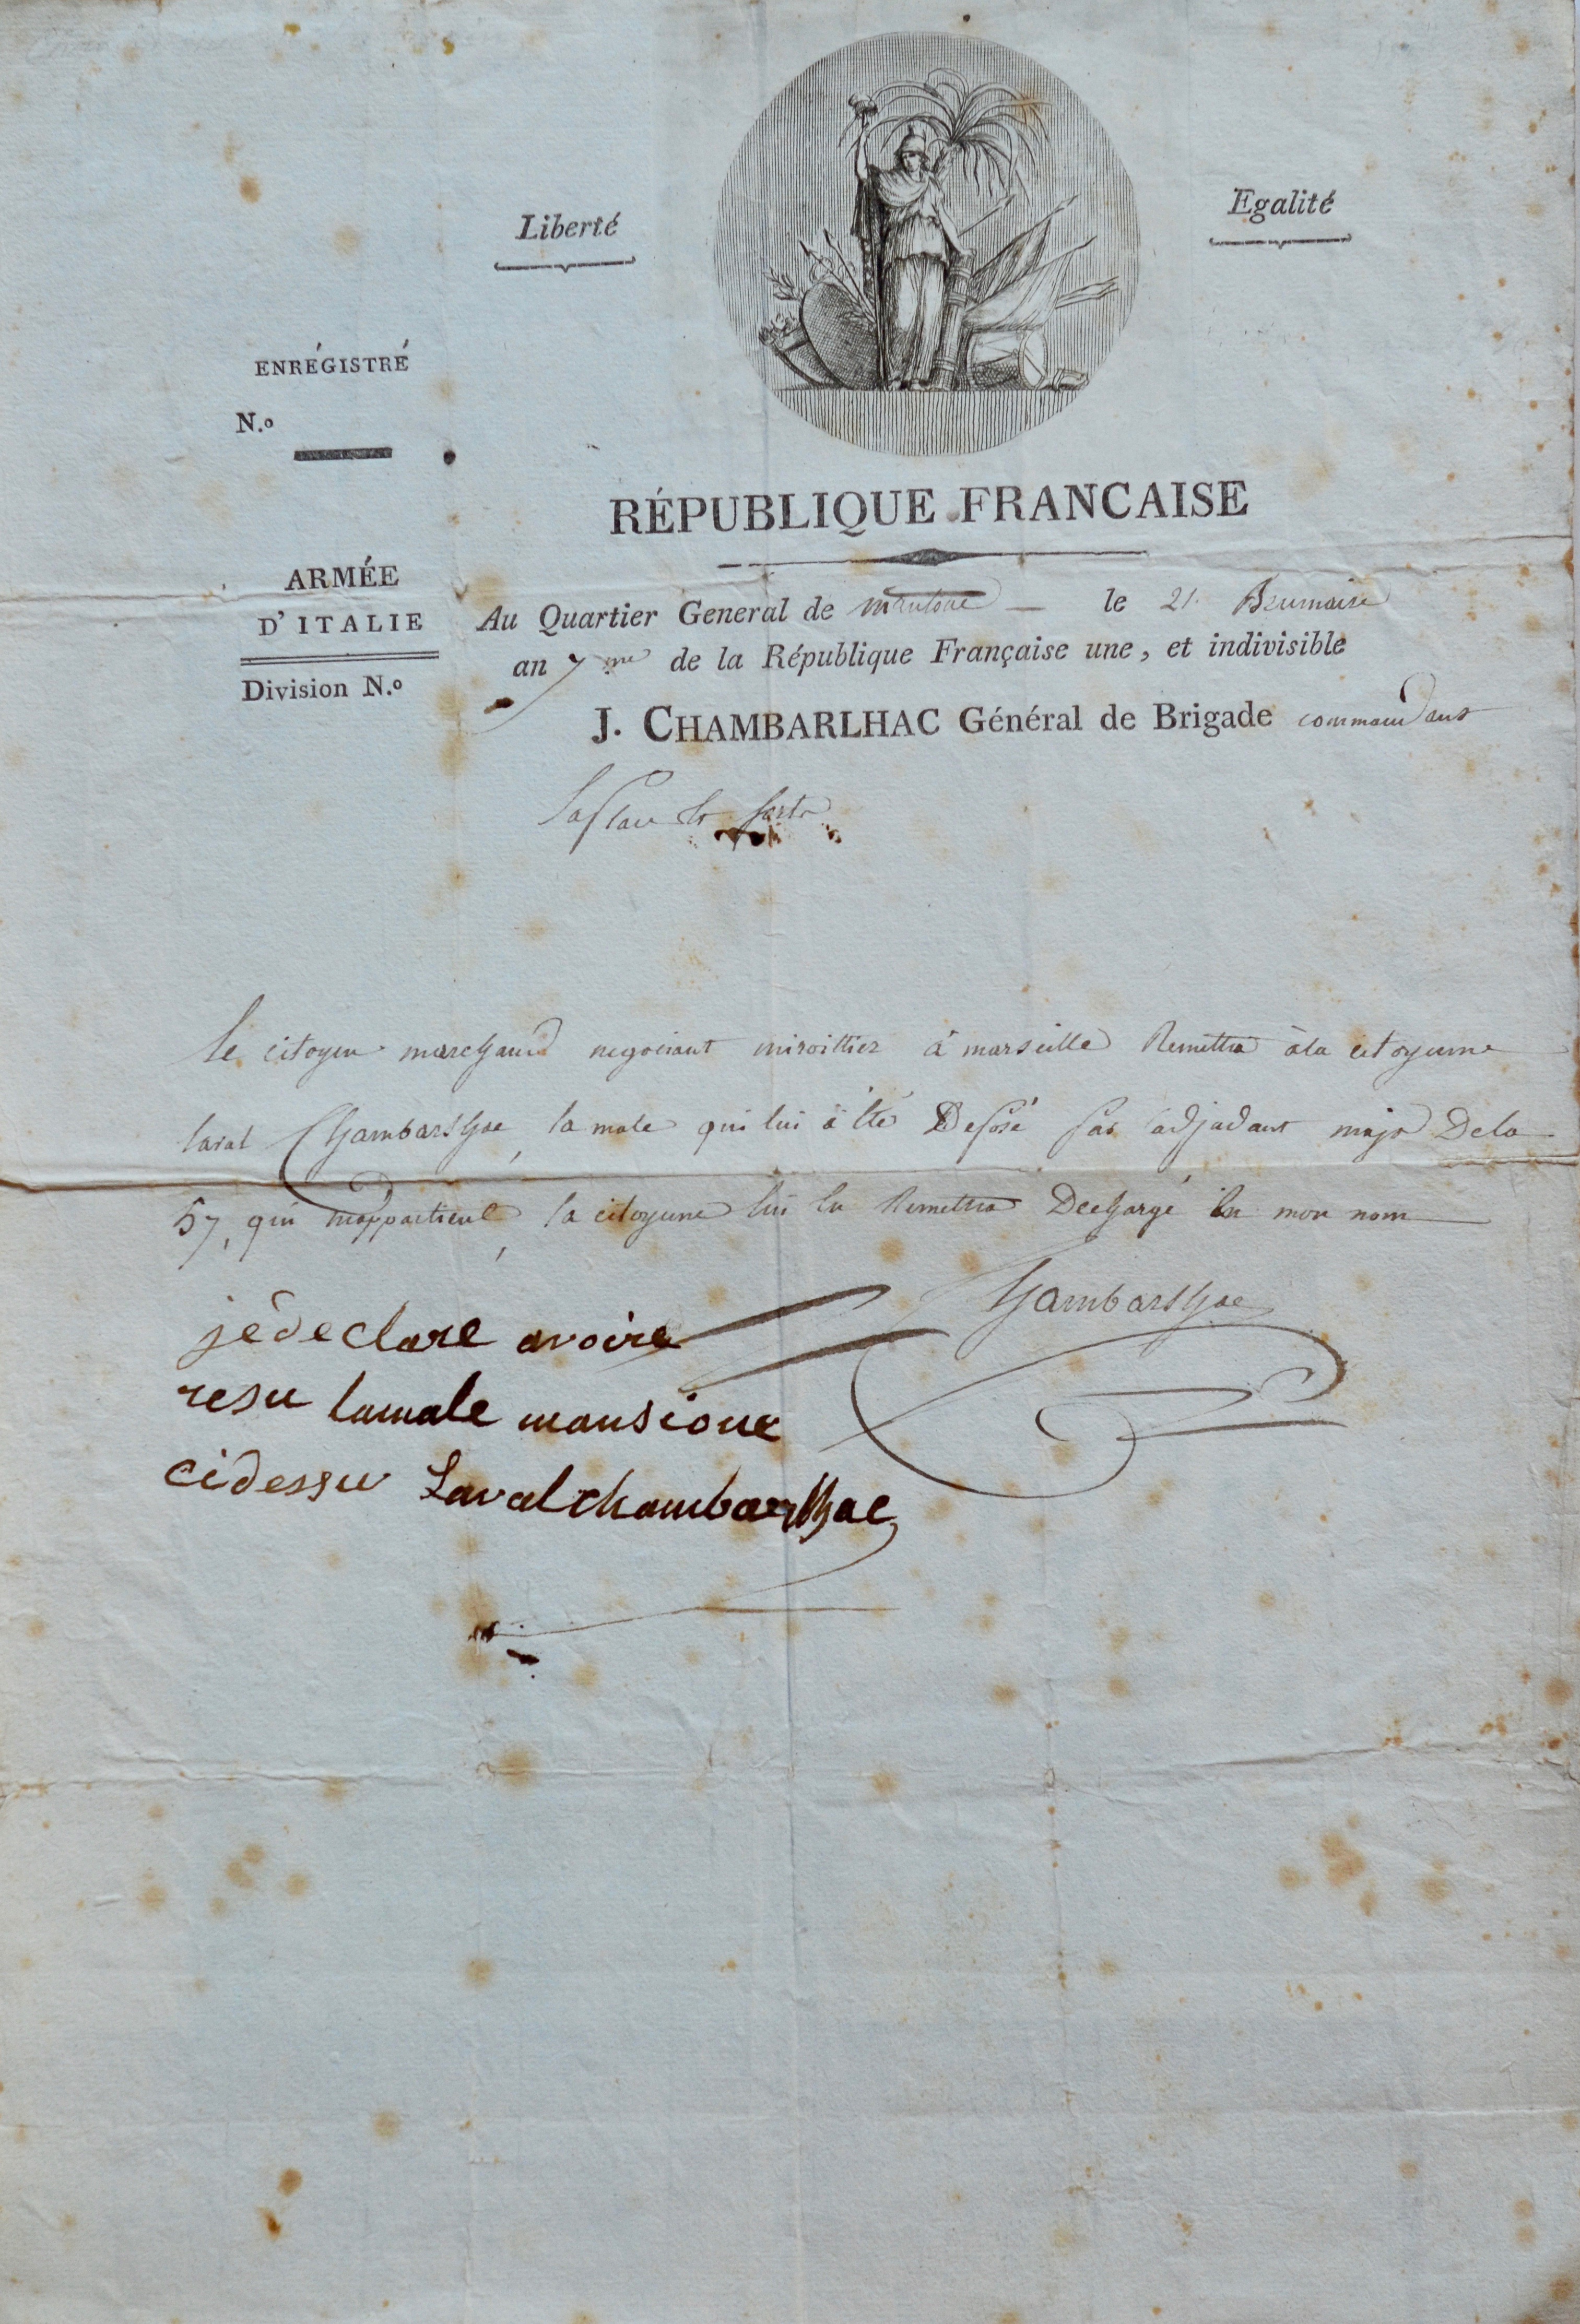 Liberté
Egalité
ENRÉGISTRÉ
N.o
RÉPUBLIQUE FRANCAISE
ARMÉE
D'ITALIE
Division N.o
Au Quartier General de mantoue — le 21 Brumaire
an 7me de la République Française une, et indivisible
J. CHAMBARLHAC Général de Brigade commandant
la place et forts
le citoyen marchand negociant miroittier à marseille Remettra àla citoyenne
laval Chambarlhac, la male qui lui à été Deposé par ladjudant major Dela
57, qui mappartient, la citoyenne lui en Remettra Decharge en mon nom
Chambarlhac
jédeclare avoire
resu lamale mansione
cidessu Laval chambarlhac